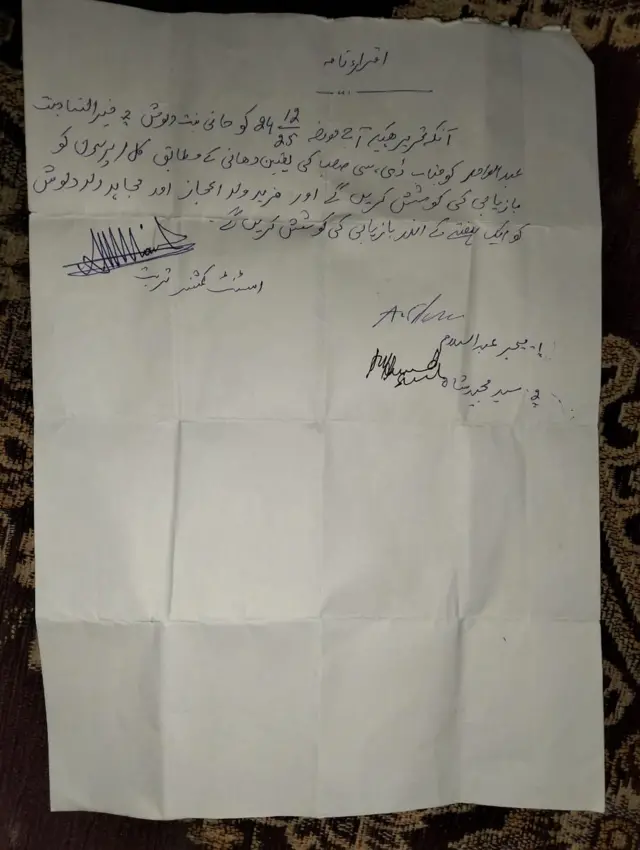 اقرارنامہ
آنکہ تحریر ہیکہ آج مورخہ 24 12/25 کو حانی بنت دلوش 2 خیرالنساء بنت
عبدالواحد کو جناب ڈی سی صاحب کی یقین دھانی کے مطابق کل پرسوں کو
بازیابی کی کوشش کریں گے اور فرید ولد اعجاز اور مجاہد ولد دلوش
کو ایک ہفتے کے اندر بازیابی کی کوشش کریں گے۔
اسسٹنٹ کمشنر تربت
1- میجر عبدالسلام
2- سید مجید شاہ